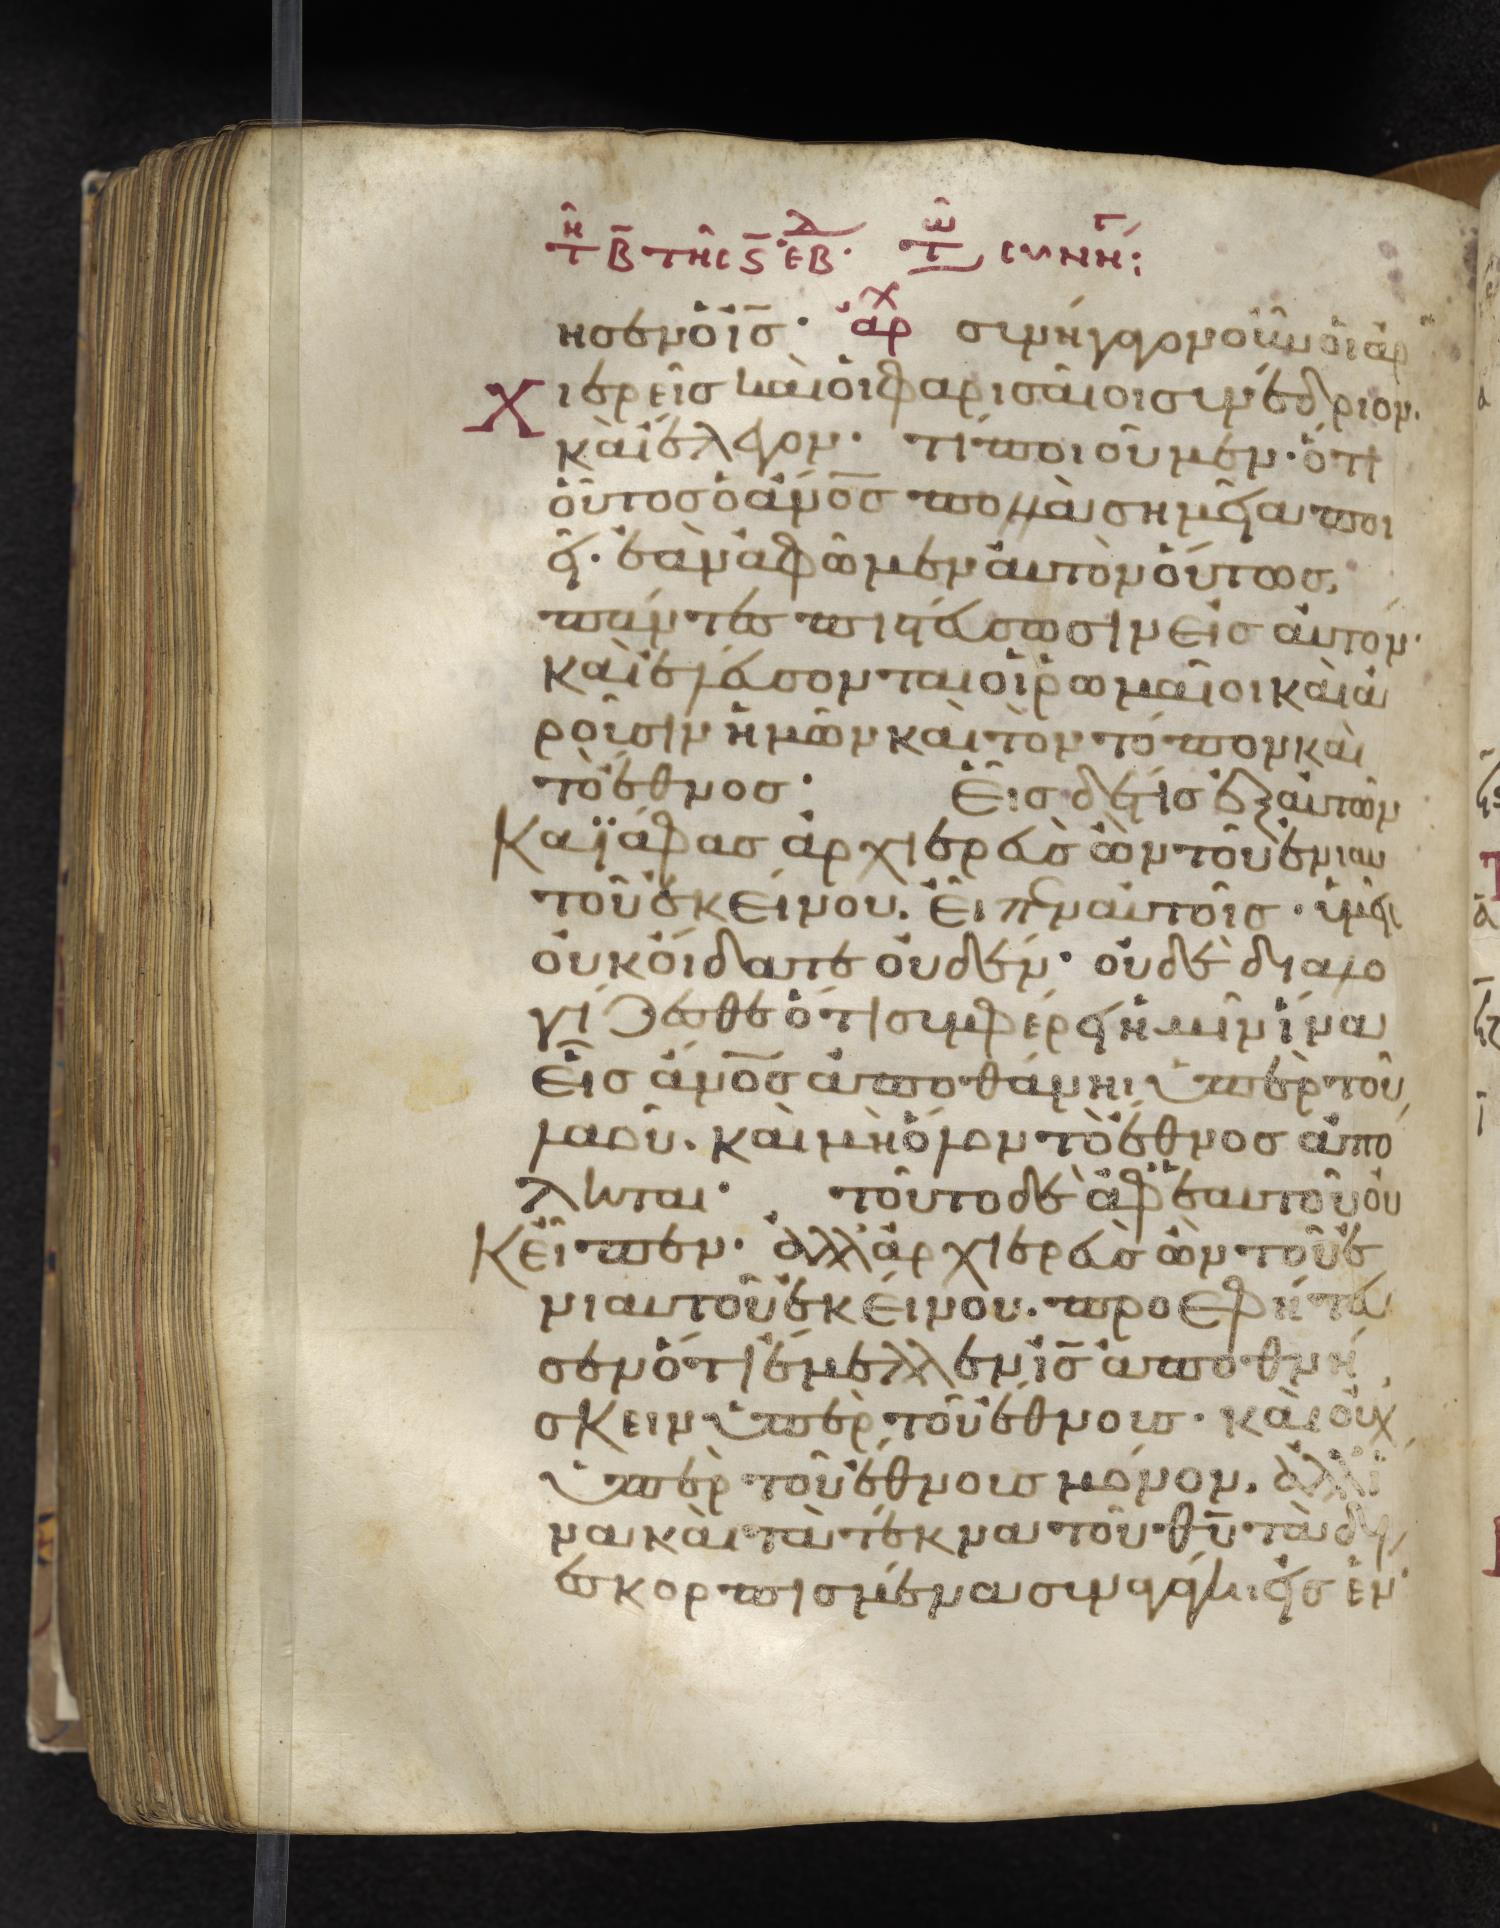 τῆ Β̄ τῆς ϛ̄ ἑβ. τῶ συνή:
ησεν ὁ ῑς̄. ἀρχ συνήγαγον οὖν οἱ ἀρ
χιερεῖς καὶ οἱ φαρισαῖοι συνέδριον.
καὶ ἔλεγον. τί ποιοῦμεν. ὅτι
οὗτος ὁ ἄν̄ο̄ς̄ πολλὰ σημεῖα ποι
εῖ. ἐὰν ἀφῶμεν αὐτὸν οὕτως,
πάντες πιστεύσωσιν εἰς αὐτόν.
καὶ ἐλεύσονται οἱ ῥωμαῖοι καὶ ἀ
ροῦσιν ἡμῶν καὶ τὸν τόπον καὶ
τὸ ἔθνος. εἷς δέ τις ἐξ αὐτῶν
Καϊάφας ἀρχιερεὺς ὢν τοῦ ἐνιαυ
τοῦ ἐκείνου. εἶπεν αὐτοῖς. ὑμεῖς
οὐκ οἴδατε οὐδέν. οὐδὲ διαλο
γίζεσθε ὅτι συμφέρει ἡμῖν ἵνα
εἷς ἄν̄ο̄ς̄ ἀποθάνηι ὑπὲρ τοῦ
λαοῦ. καὶ μὴ ὅλον τὸ ἔθνος ἀπό
ληται. τοῦτο δὲ ἀφ' ἑαυτοῦ οὐ
Κ εἶπεν. ἀλλ' ἀρχιερεὺς ὢν τοῦ ἐ
νιαυτοῦ ἐκείνου. προεφήτευ
σεν ὅτι ἔμελλεν ῑς̄ ἀποθνή
σκειν ὑπὲρ τοῦ ἔθνους. καὶ οὐχ
ὑπὲρ τοῦ ἔθνους μόνον. ἀλλ' ἵ
να καὶ τὰ τέκνα τοῦ θ̄ῡ τὰ διε
σκορπισμένα συναγάγηι εἰς ἕν.